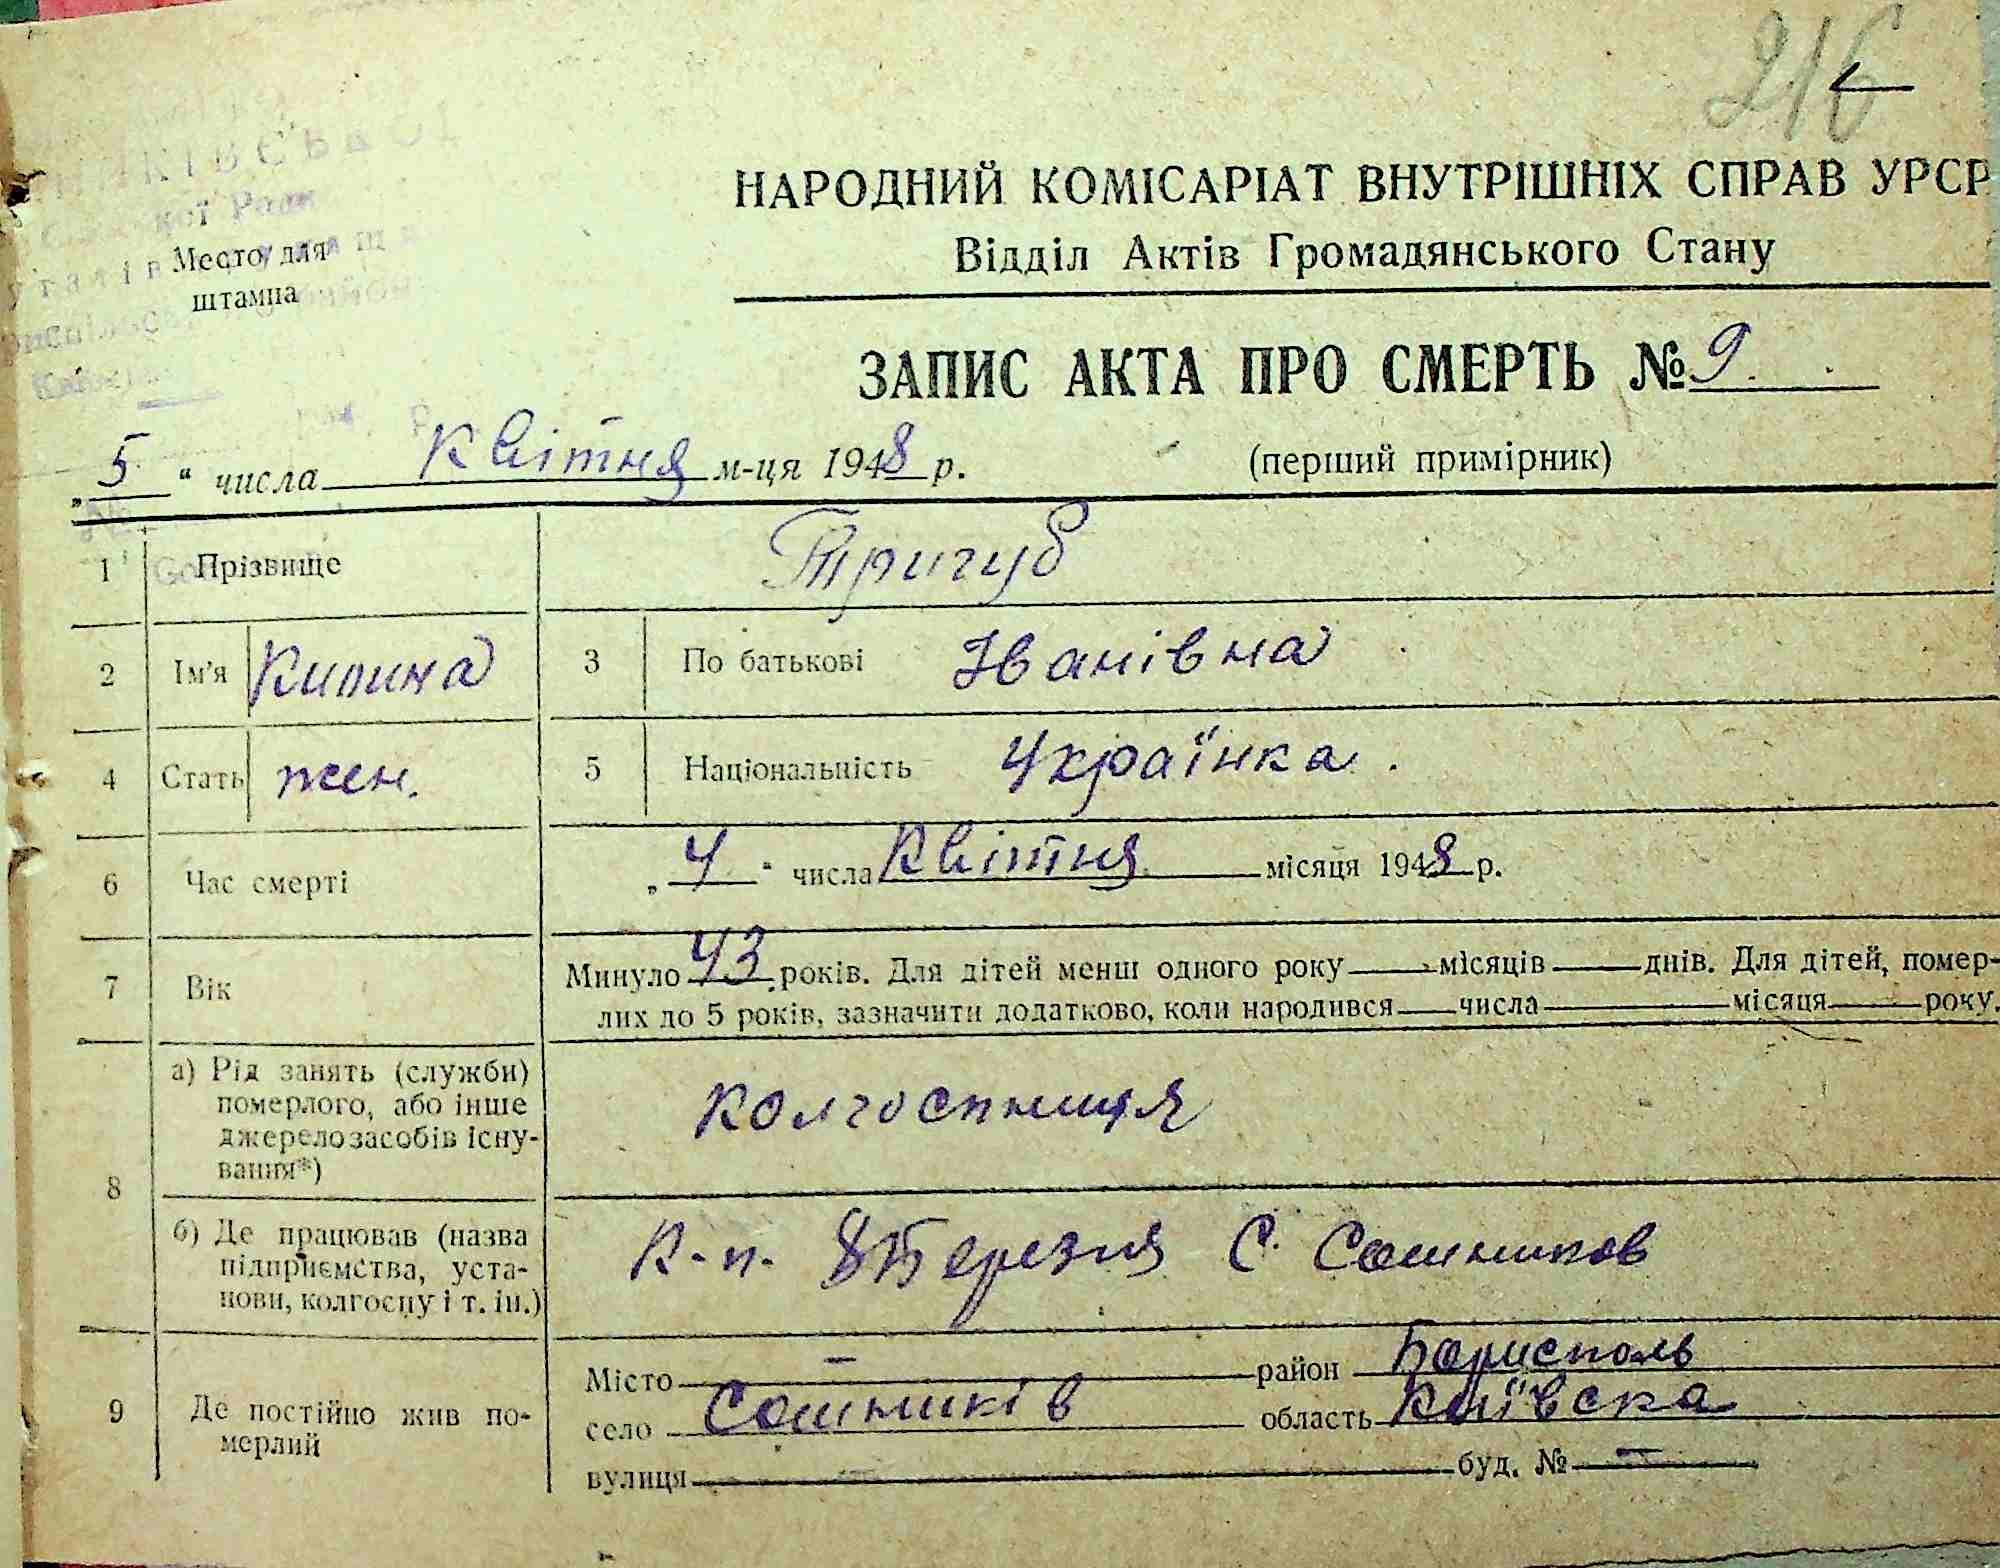 216
НАРОДНИЙ КОМІСАРІАТ ВНУТРІШНІХ СПРАВ УРСР
Відділ Актів Громадянського Стану
Место для
штампа
ЗАПИС АКТА ПРО СМЕРТЬ № 9.
„5“ числа Квітня м-ця 1948 р. (перший примірник)
1 Прізвище Тригуб
2 Ім'я Килина 3 По батькові Іванівна
4 Стать жен. 5 Національність Українка.
6 Час смерті „4“ числа Квітня місяця 1948 р.
7 Вік Минуло 43 років. Для дітей менш одного року — місяців — днів. Для дітей, помер-
лих до 5 років, зазначити додатково, коли народився — числа — місяця — року.
8 а) Рід занять (служби)
померлого, або інше
джерело засобів існу-
вання*) колгоспниця
б) Де працював (назва
підприємства, уста-
нови, колгоспу і т. ін.) К-п. 8 Березня С. Сошников
9 Де постійно жив по-
мерлий
Місто — район Борисполь
село Сошників область Київска
вулиця — буд. № —